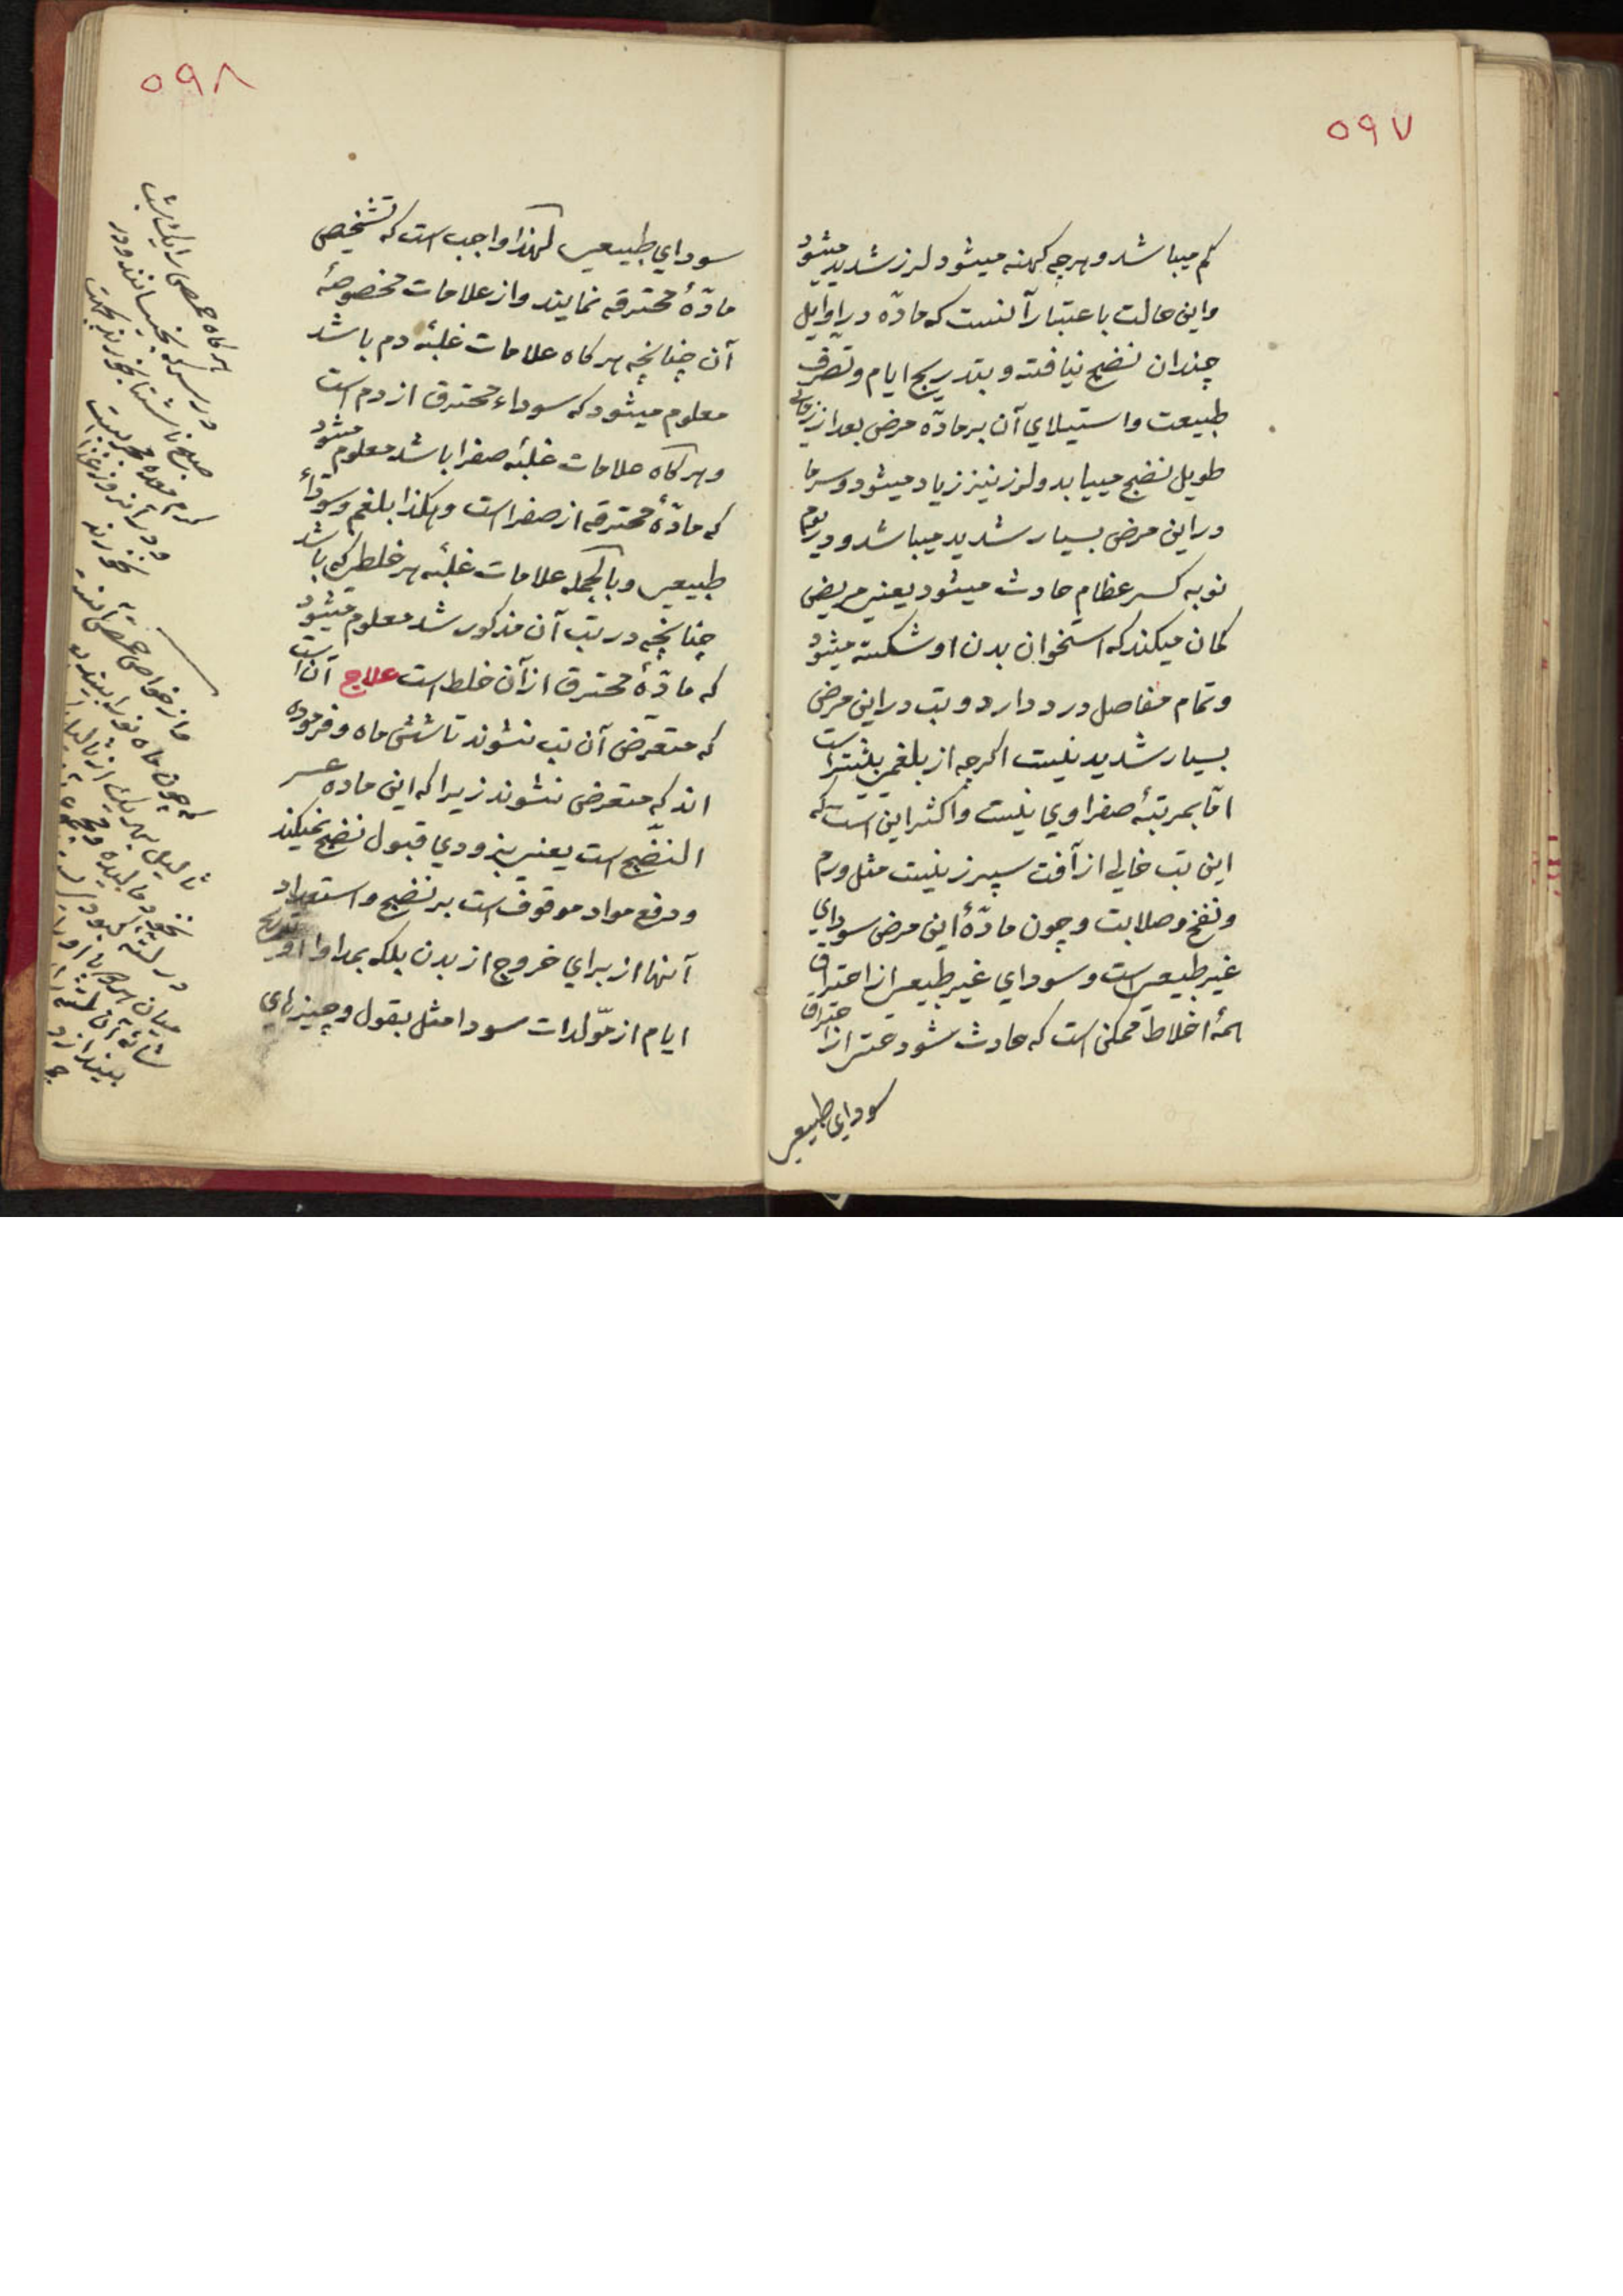 ۵۹۷
کم میباشد و هرچه کهنه میشود لرز شدید میشود
واین حالت باعتبار آنست که مادّه در اوایل
چندان نضج نیافته و بتدریج ایام و تصرف
طبیعت و استیلاي آن بر مادّه مرض بعد از زمانی
طویل نضج مییابد ولرز نیز زیاد میشود و سرما
در این مرض بسیار شدید میباشد و در یوم
نوبه کسر عظام حادث میشود یعنی مریض
کمان میکند که استخوان بدن او شکسته میشود
وتمام مفاصل درد دارد و تب در این مرض
بسیار شدید نیست اکرچه از بلغمی بیشتر است
امّا بمرتبهٔ صفراوي نیست و اکثر این است که
این تب خالی از آفت سپرز نیست مثل ورم
ونفخ وصلابت وچون مادّهٔ این مرض سوداي
غیر طبیعی است و سوداي غیر طبیعی از احتراق
همهٔ اخلاط ممکن است که حادث شود حتی از احتراق
سوداي طبیعی
۵۹۸
سوداي طبیعی لهذا واجب است که تشخیص
مادّهٔ محترقه نمایند و از علامات مخصوصهٔ
آن چنانچه هرکاه علامات غلبهٔ دم باشد
معلوم میشود که سوداء محترق از دم است
وهرکاه علامات غلبهٔ صفرا باشد معلوم میشود
که مادّهٔ محترقه از صفراست وهکذا بلغم وسوداء
طبیعی وبالجمله علامات غلبهٔ هر خلطی که باشد
چنانچه در تب آن مذکور شد معلوم میشود
که مادّهٔ محترق از آن خلط است علاج آن است
که متعرّض آن تب نشوند تا شش ماه و فرموده
اند که متعرض نشوند زیرا که این ماده عسر
النضّج است یعنی بزودي قبول نضج نمیکند
ودفع مواد موقوف است بر نضج واستعداد
آنها از براي خروج از بدن بلکه بمداوا و تدریج
ایام از مّولدات سودا مثل بقول وچیزهاي
هرکاه حمص را یک شب
در سرکه بخیسانند ودر
صبح ناشتا بخورند بجهت
کرم معده مجربست
ودر آنروز غذا
نخورند
واز خواص حمص آنست
که چون ماه نو را ببینند